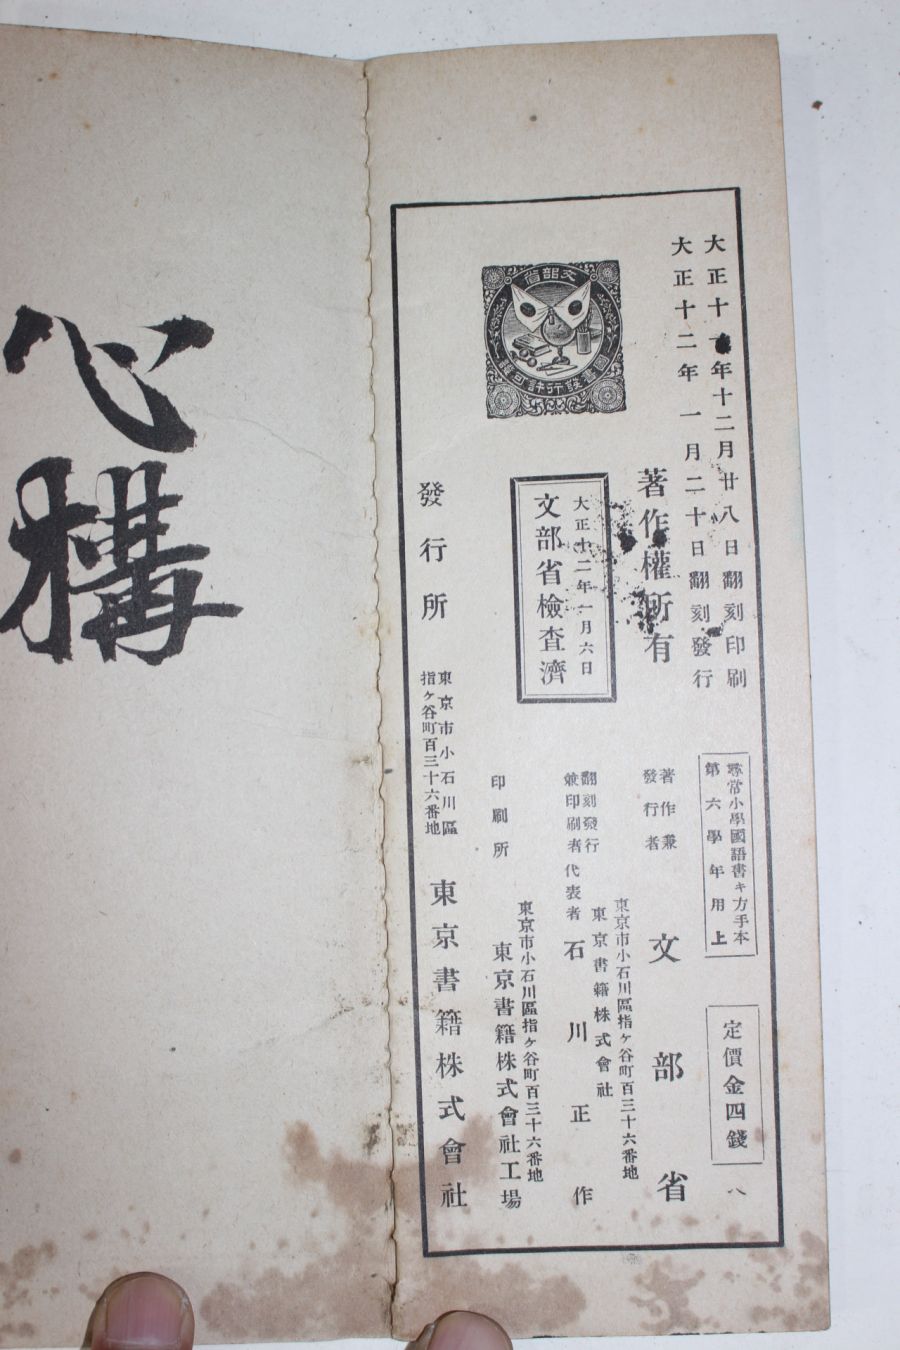 大正十 年十二月廿八日翻刻印刷
大正十二年一月二十日翻刻發行
尋常小學國語書キ方手本
第六學年用上
定價金四錢
八
著作權所有
著作兼
發行者
文部省
大正十二年一月六日
文部省檢査濟
翻刻發行
兼印刷者
代表者
東京市小石川區指ヶ谷町百三十六番地
東京書籍株式會社
石川正作
文部省
圖書發行許可證
印刷所
東京市小石川區指ヶ谷町百三十六番地
東京書籍株式會社工場
發行所
東京市小石川區
指ヶ谷町百三十六番地
東京書籍株式會社
心構